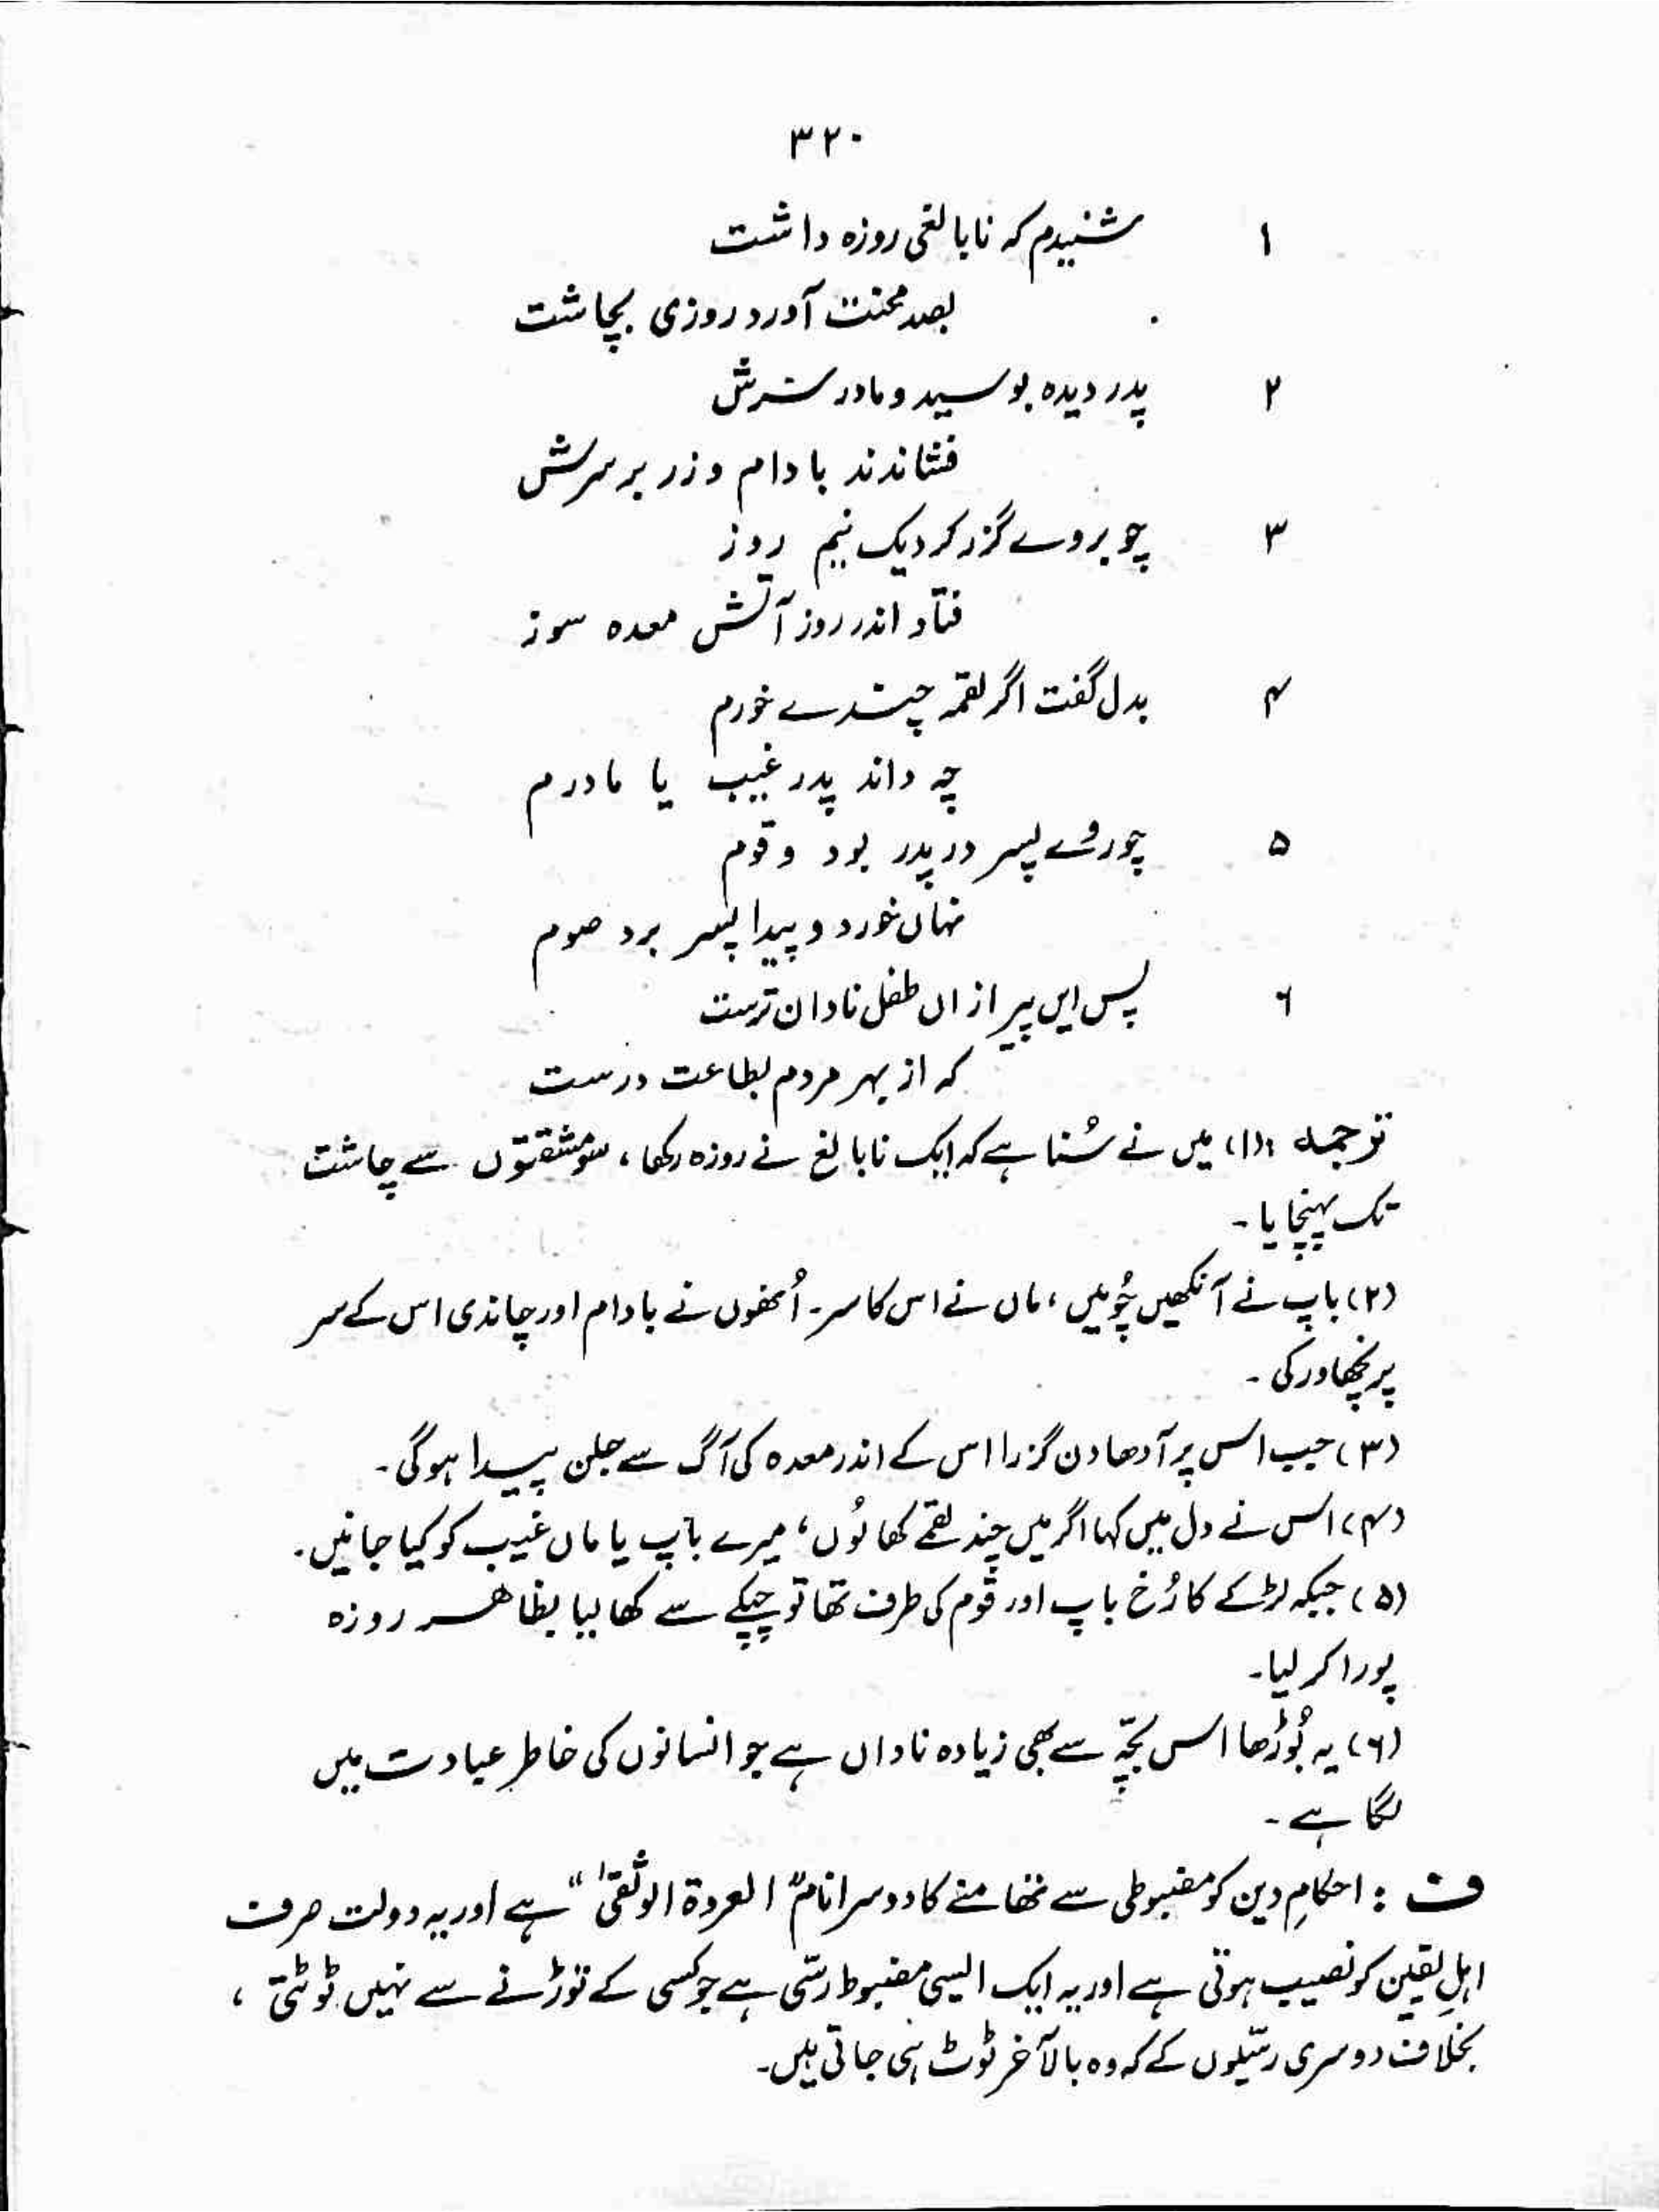 ۳۲۰
۱ شنیدم کہ نابالغی روزہ داشت
بصد محنت آورد روزی بچاشت
۲ پدر دیدہ بوسید و مادر سرش
فشاندند بادام و زر بر سرش
۳ چو بروے گزر کرد یک نیم روز
فتاد اندر روز آتش معدہ سوز
۴ بدل گفت اگر لقمہ چندے خورم
چہ داند پدر غیب یا مادرم
۵ چو روے پسر در پدر بود و قوم
نہاں خورد و پیدا پسر برد صوم
۶ پس ایں پیر ازاں طفل نادان ترست
کہ از بہر مردم بطاعت درست
ترجمہ : (۱) میں نے سُنا ہے کہ ایک نابالغ نے روزہ رکھا، سو مشقتوں سے چاشت
تک پہنچایا۔
(۲) باپ نے آنکھیں چُومیں، ماں نے اس کا سر۔ اُنھوں نے بادام اور چاندی اس کے سر
پر نچھاور کی۔
(۳) جب اس پر آدھا دن گزرا اس کے اندر معدہ کی آگ سے جلن پیدا ہوگی۔
(۴) اس نے دل میں کہا اگر میں چند لقمے کھا لُوں، میرے باپ یا ماں غیب کو کیا جانیں۔
(۵) جبکہ لڑکے کا رُخ باپ اور قوم کی طرف تھا تو چپکے سے کھا لیا بظاہر روزہ
پورا کر لیا۔
(۶) یہ بُوڑھا اس بچّہ سے بھی زیادہ ناداں ہے جو انسانوں کی خاطر عبادت میں
لگا ہے۔
ف : احکامِ دین کو مضبوطی سے تھامنے کا دوسرا نام "العروۃ الوثقیٰ" ہے اور یہ دولت صرف
اہلِ یقین کو نصیب ہوتی ہے اور یہ ایک ایسی مضبوط رسّی ہے جو کسی کے توڑنے سے نہیں ٹوٹتی،
بخلاف دوسری رسّیوں کے کہ وہ بالآخر ٹوٹ ہی جاتی ہیں۔